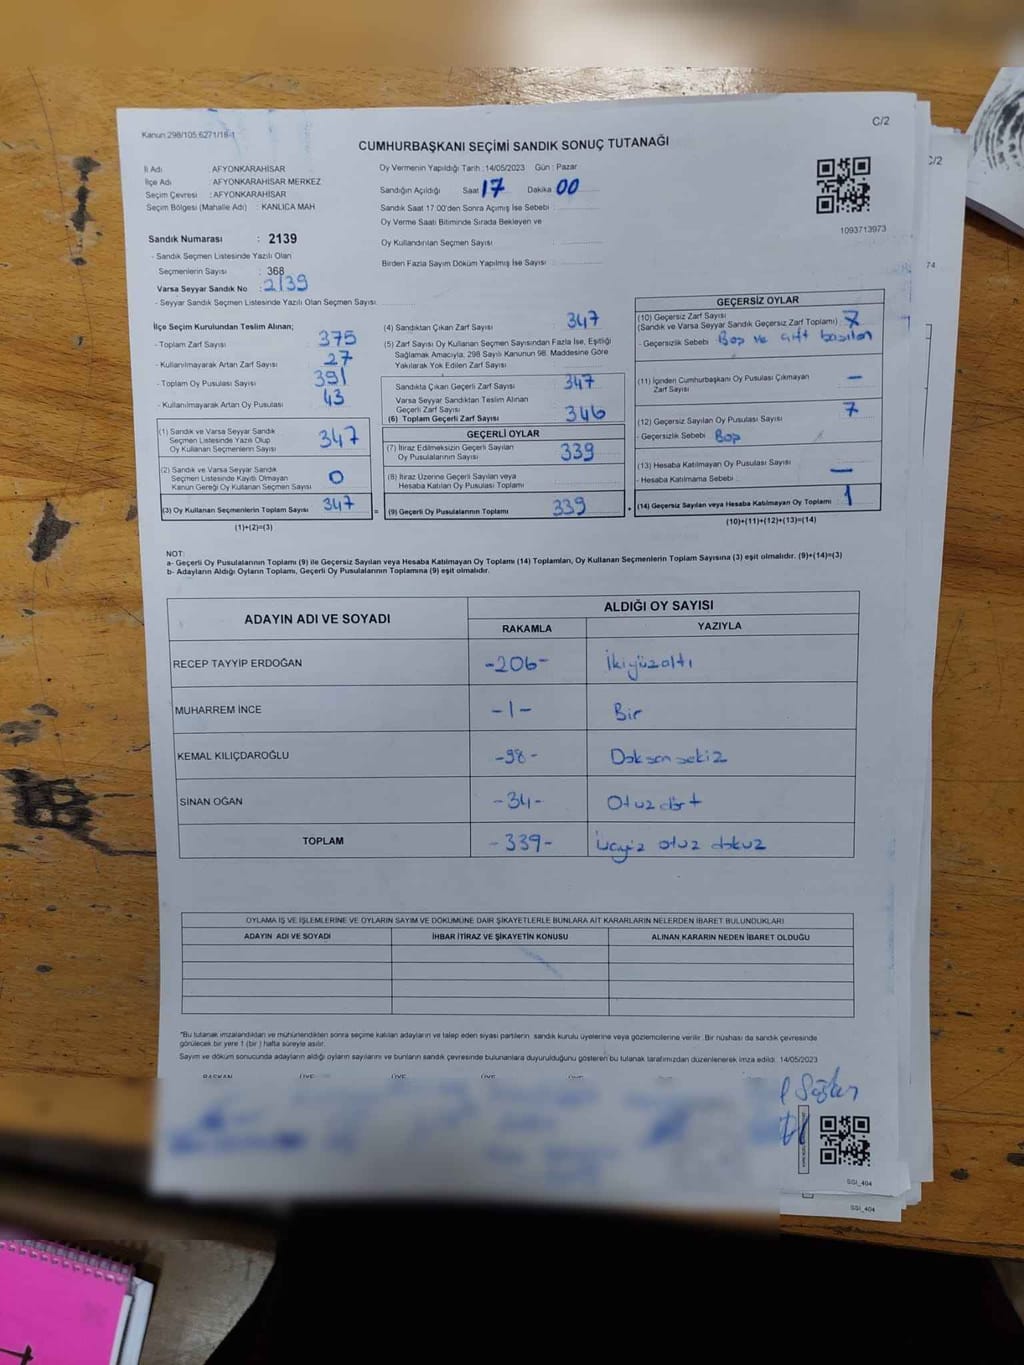 Kanun:298/105;6271/18-1
C/2
CUMHURBAŞKANI SEÇİMİ SANDIK SONUÇ TUTANAĞI
İl Adı : AFYONKARAHİSAR
İlçe Adı : AFYONKARAHİSAR MERKEZ
Seçim Çevresi : AFYONKARAHİSAR
Seçim Bölgesi (Mahalle Adı) : KANLICA MAH
Oy Vermenin Yapıldığı Tarih :14/05/2023 Gün : Pazar
Sandığın Açıldığı Saat 17 Dakika 00
Sandık Saat 17:00'den Sonra Açımış İse Sebebi :
Oy Verme Saati Bitiminde Sırada Bekleyen ve
Oy Kullandırılan Seçmen Sayısı :
Birden Fazla Sayım Döküm Yapılmış İse Sayısı :
1093713973
Sandık Numarası : 2139
- Sandık Seçmen Listesinde Yazılı Olan
Seçmenlerin Sayısı : 368
Varsa Seyyar Sandık No : 2139
- Seyyar Sandık Seçmen Listesinde Yazılı Olan Seçmen Sayısı:
İlçe Seçim Kurulundan Teslim Alınan;
- Toplam Zarf Sayısı : 375
- Kullanılmayarak Artan Zarf Sayısı : 27
- Toplam Oy Pusulası Sayısı : 391
- Kullanılmayarak Artan Oy Pusulası : 43
(1) Sandık ve Varsa Seyyar Sandık
Seçmen Listesinde Yazılı Olup
Oy Kullanan Seçmenlerin Sayısı : 347
(2) Sandık ve Varsa Seyyar Sandık
Seçmen Listesinde Kayıtlı Olmayan
Kanun Gereği Oy Kullanan Seçmen Sayısı : 0
(3) Oy Kullanan Seçmenlerin Toplam Sayısı : 347
(1)+(2)=(3)
(4) Sandıktan Çıkan Zarf Sayısı : 347
(5) Zarf Sayısı Oy Kullanan Seçmen Sayısından Fazla İse, Eşitliği
Sağlamak Amacıyla; 298 Sayılı Kanunun 98. Maddesine Göre
Yakılarak Yok Edilen Zarf Sayısı :
Sandıkta Çıkan Geçerli Zarf Sayısı : 347
Varsa Seyyar Sandıktan Teslim Alınan
Geçerli Zarf Sayısı :
(6) Toplam Geçerli Zarf Sayısı : 346
GEÇERLİ OYLAR
(7) İtiraz Edilmeksizin Geçerli Sayılan
Oy Pusulalarının Sayısı : 339
(8) İtiraz Üzerine Geçerli Sayılan veya
Hesaba Katılan Oy Pusulası Toplamı :
= (9) Geçerli Oy Pusulalarının Toplamı : 339
GEÇERSİZ OYLAR
(10) Geçersiz Zarf Sayısı
(Sandık ve Varsa Seyyar Sandık Geçersiz Zarf Toplamı) : 7
- Geçersizlik Sebebi : Boş ve çift basılan
(11) İçinden Cumhurbaşkanı Oy Pusulası Çıkmayan
Zarf Sayısı : —
(12) Geçersiz Sayılan Oy Pusulası Sayısı : 7
- Geçersizlik Sebebi : Boş
(13) Hesaba Katılmayan Oy Pusulası Sayısı : —
- Hesaba Katılmama Sebebi :
+ (14) Geçersiz Sayılan veya Hesaba Katılmayan Oy Toplamı : 1
(10)+(11)+(12)+(13)=(14)
NOT:
a- Geçerli Oy Pusulalarının Toplamı (9) ile Geçersiz Sayılan veya Hesaba Katılmayan Oy Toplamı (14) Toplamları, Oy Kullanan Seçmenlerin Toplam Sayısına (3) eşit olmalıdır. (9)+(14)=(3)
b- Adayların Aldığı Oyların Toplamı, Geçerli Oy Pusulalarının Toplamına (9) eşit olmalıdır.
ADAYIN ADI VE SOYADI
ALDIĞI OY SAYISI
RAKAMLA YAZIYLA
RECEP TAYYİP ERDOĞAN -206- İkiyüzaltı
MUHARREM İNCE -1- Bir
KEMAL KILIÇDAROĞLU -98- Doksan sekiz
SİNAN OĞAN -34- Otuz dört
TOPLAM -339- Üçyüz otuz dokuz
OYLAMA İŞ VE İŞLEMLERİNE VE OYLARIN SAYIM VE DÖKÜMÜNE DAİR ŞİKAYETLERLE BUNLARA AİT KARARLARIN NELERDEN İBARET BULUNDUKLARI
ADAYIN ADI VE SOYADI İHBAR İTİRAZ VE ŞİKAYETİN KONUSU ALINAN KARARIN NEDEN İBARET OLDUĞU
*Bu tutanak imzalandıktan ve mühürlendikten sonra seçime katılan adayların ve talep eden siyasi partilerin sandık kurulu üyelerine veya gözlemcilerine verilir. Bir nüshası da sandık çevresinde
görülecek bir yere 1 (bir) hafta süreyle asılır.
Sayım ve döküm sonucunda adayların aldığı oyların sayılarını ve bunların sandık çevresinde bulunanlara duyurulduğunu gösteren bu tutanak tarafımızdan düzenlenerek imza edildi. 14/05/2023
BAŞKAN ÜYE ÜYE ÜYE ÜYE
SSİ_404
SSİ_404